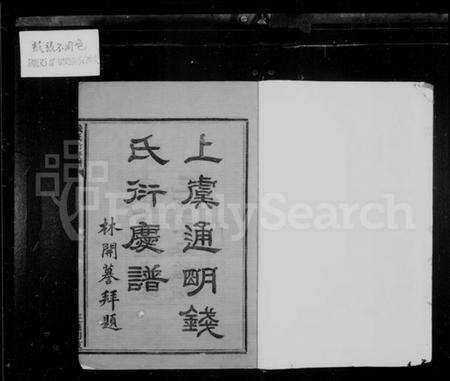 上虞通明錢
氏衍慶譜
林開謩拜題
FamilySearch